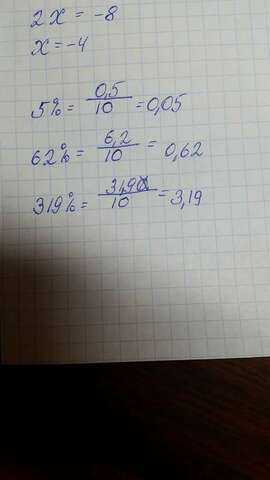 2x = -8
x = -4
5% = 0,5/10 = 0,05
62% = 6,2/10 = 0,62
319% = 31,9/10 = 3,19